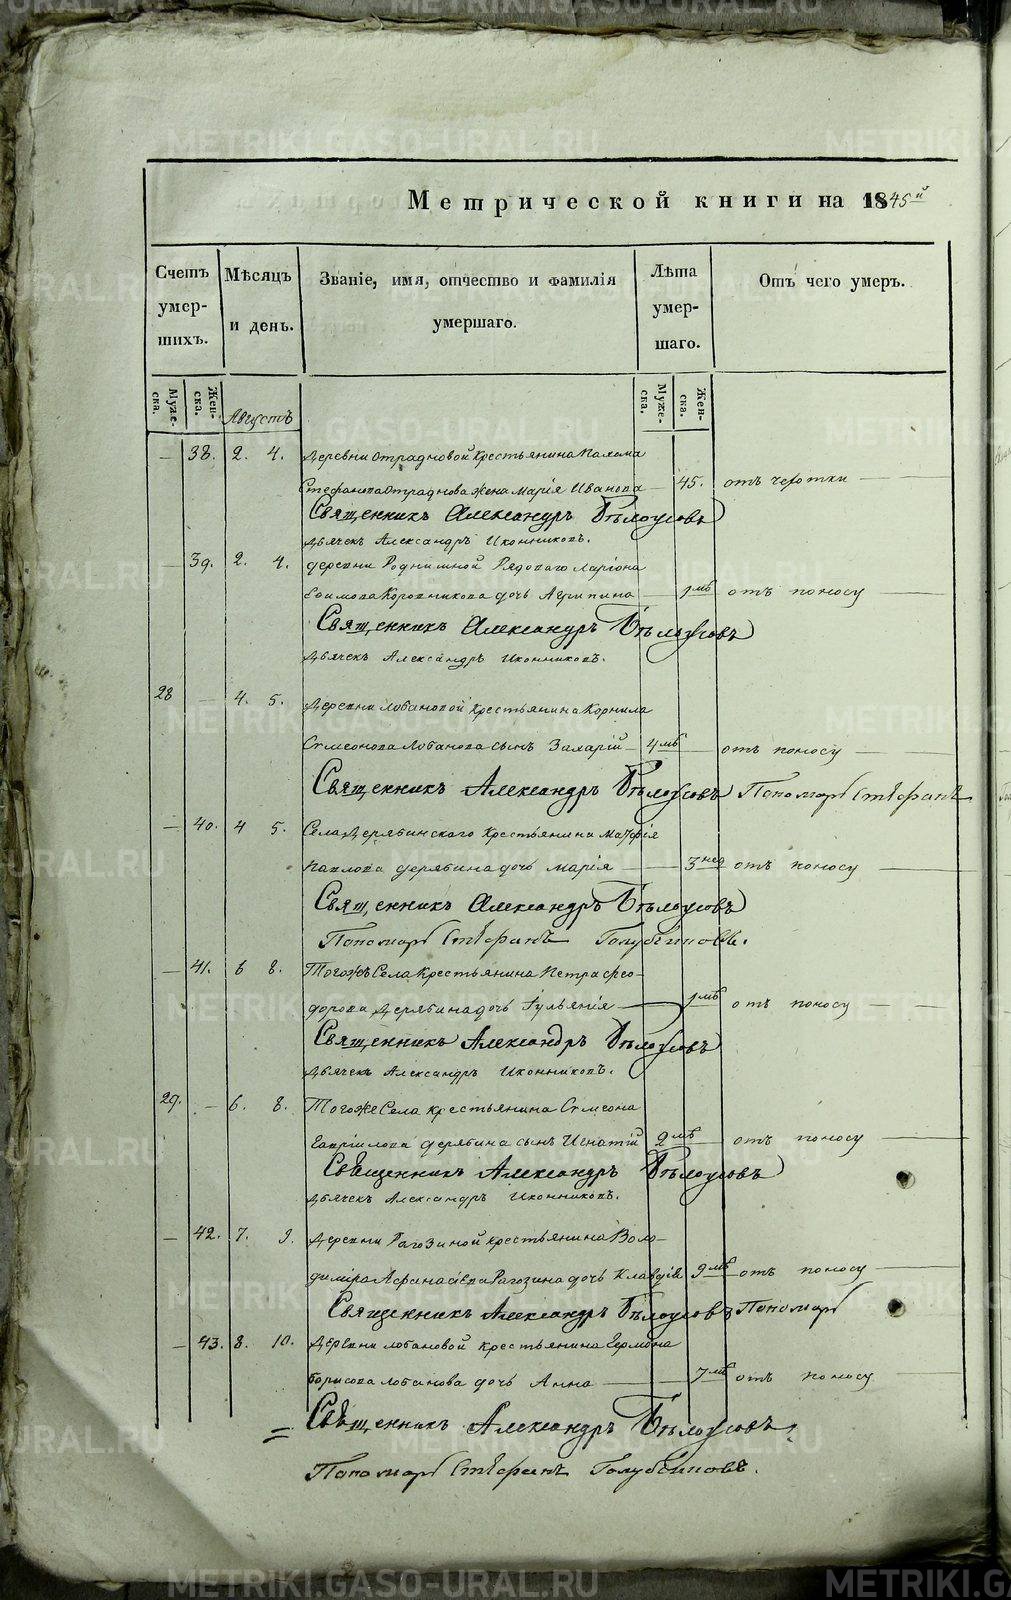 Метрической книги на 1845й
Счетъ умер- шихъ.
Мѣсяцъ и день.
Званіе, имя, отчество и фамилія умершаго.
Лѣта умер- шаго.
Отъ чего умеръ.
Муже- ска. Жен- ска. Августъ Муже- ска. Жен- ска.
— 38. 2. 4. Деревни Отрадновой Крестьянина Пахома
Стефанова Отраднова жена Марія Иванова — 45. отъ чехотки
Священникъ Александръ Бѣлоусовъ
Дьячекъ Александръ Иконниковъ.
— 39. 2. 4. Деревни Родни́мной Рядоваго Ларіона
Ефимова Коровникова дочь Агрипина — 1 мѣ отъ поносу
Священникъ Александръ Бѣлоусовъ
Дьячекъ Александръ Иконниковъ.
28 — 4. 5. Деревни Лобановой Крестьянина Корнила
Симеонова Лобанова сынъ Захарій — 4 мѣ — отъ поносу
Священникъ Александръ Бѣлоусовъ Пономарь Стефанъ
— 40. 4 5. Села Дерябинского Крестьянина Матфія
Павлова Дерябина дочь Марія — 3 нед отъ поносу
Священникъ Александръ Бѣлоусовъ
Пономарь Стефанъ Голубчиковъ.
— 41. 6 8. Тогожъ Села Крестьянина Петра Фео-
дорова Дерябина дочь Іульянія — 1 мѣ отъ поносу
Священникъ Александръ Бѣлоусовъ
Дьячекъ Александръ Иконниковъ.
29. — 6. 8. Тогоже Села крестьянина Симеона
Гавріилова Дерябина сынъ Игнатій 2 мѣ — отъ поносу
Священникъ Александръ Бѣлоусовъ
Дьячекъ Александръ Иконниковъ.
— 42. 7. 9. Деревни Рагозиной крестьянина Воло-
диміра Афанасіева Рагозина дочь Клавдія 9 мѣ отъ поносу
Священникъ Александръ Бѣлоусовъ Пономарь
— 43. 8. 10. Деревни Лобановой крестьянина Гермона
Борисова Лобанова дочь Анна — 7 мѣ отъ поносу
Священникъ Александръ Бѣлоусовъ.
Пономарь Стефанъ Голубчиковъ.
METRIKI.GASO-URAL.RU